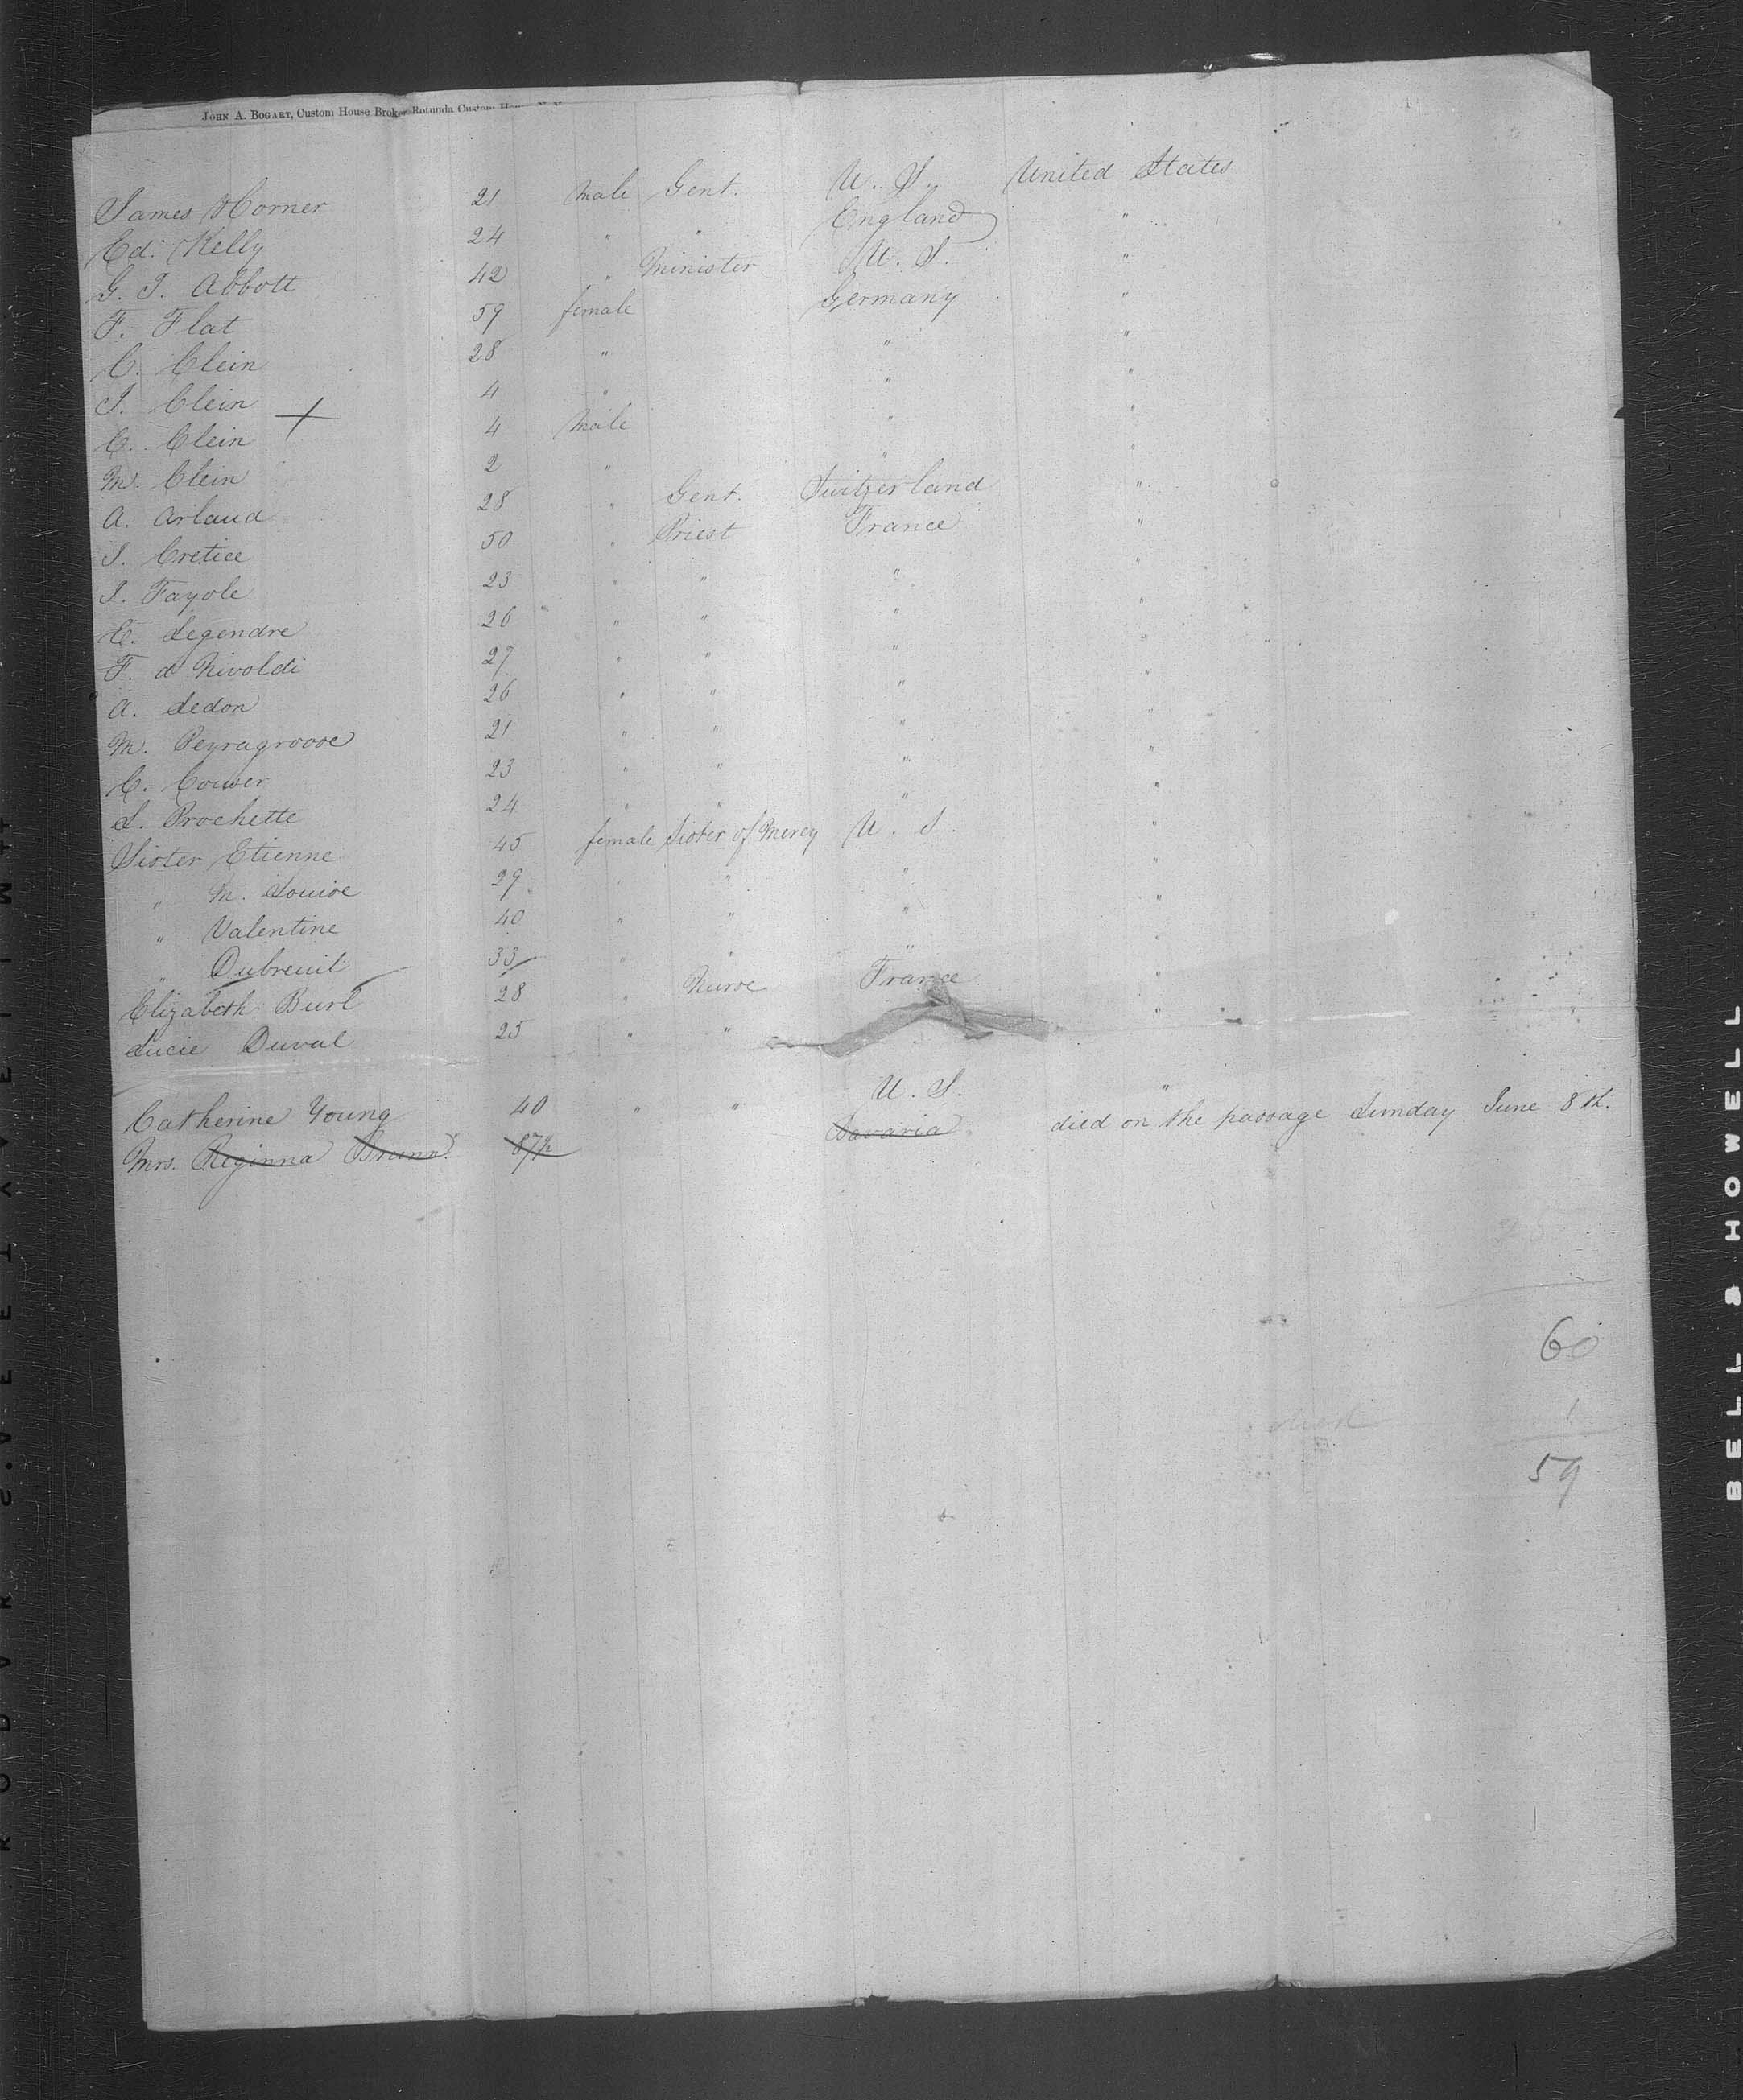 JOHN A. BOGART, Custom House Broker Rotunda Custom
James Horner 21 Male Gent. U. S. United States
Ed: Kelly 24 " " England "
G. J. Abbott 42 " Minister U. S. "
F. Flat 59 female Germany "
C. Clein 28 " " "
J. Clein 4 " " "
C. Clein 4 Male " "
M. Clein 2 " " "
A. Arlaud 28 " Gent. Switzerland "
J. Cretice 50 " Priest France "
J. Fayole 23 " " " "
E. Legendre 26 " " " "
F. d Nivoldi 27 " " " "
A. Ledon 26 " " " "
M. 21 " " " "
C. Couser 23 " " " "
L. Prochette 24 " " " "
Sister Etienne 45 female Sister of Mercy U. S. "
" M. Louise 29 " " " "
" Valentine 40 " " " "
" Dubreuil 33 " " " "
Elizabeth Burl 28 " Nurse France "
Lucie Duval 25 " " "
Catherine Young 40 " " U. S. "
Mrs. Reginna Brunn Bavaria died on the passage Sunday June 8th.
25
60
died 1
59
BELL & HOWELL